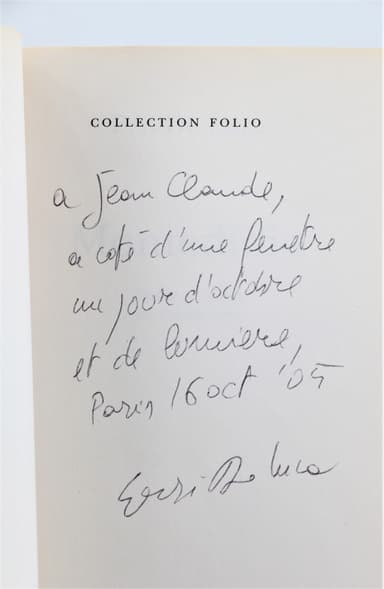 COLLECTION FOLIO
a Jean Claude,
a coté d'une fenetre
un jour d'octobre
et de lumiere,
Paris 16 oct '05
Erri De Luca